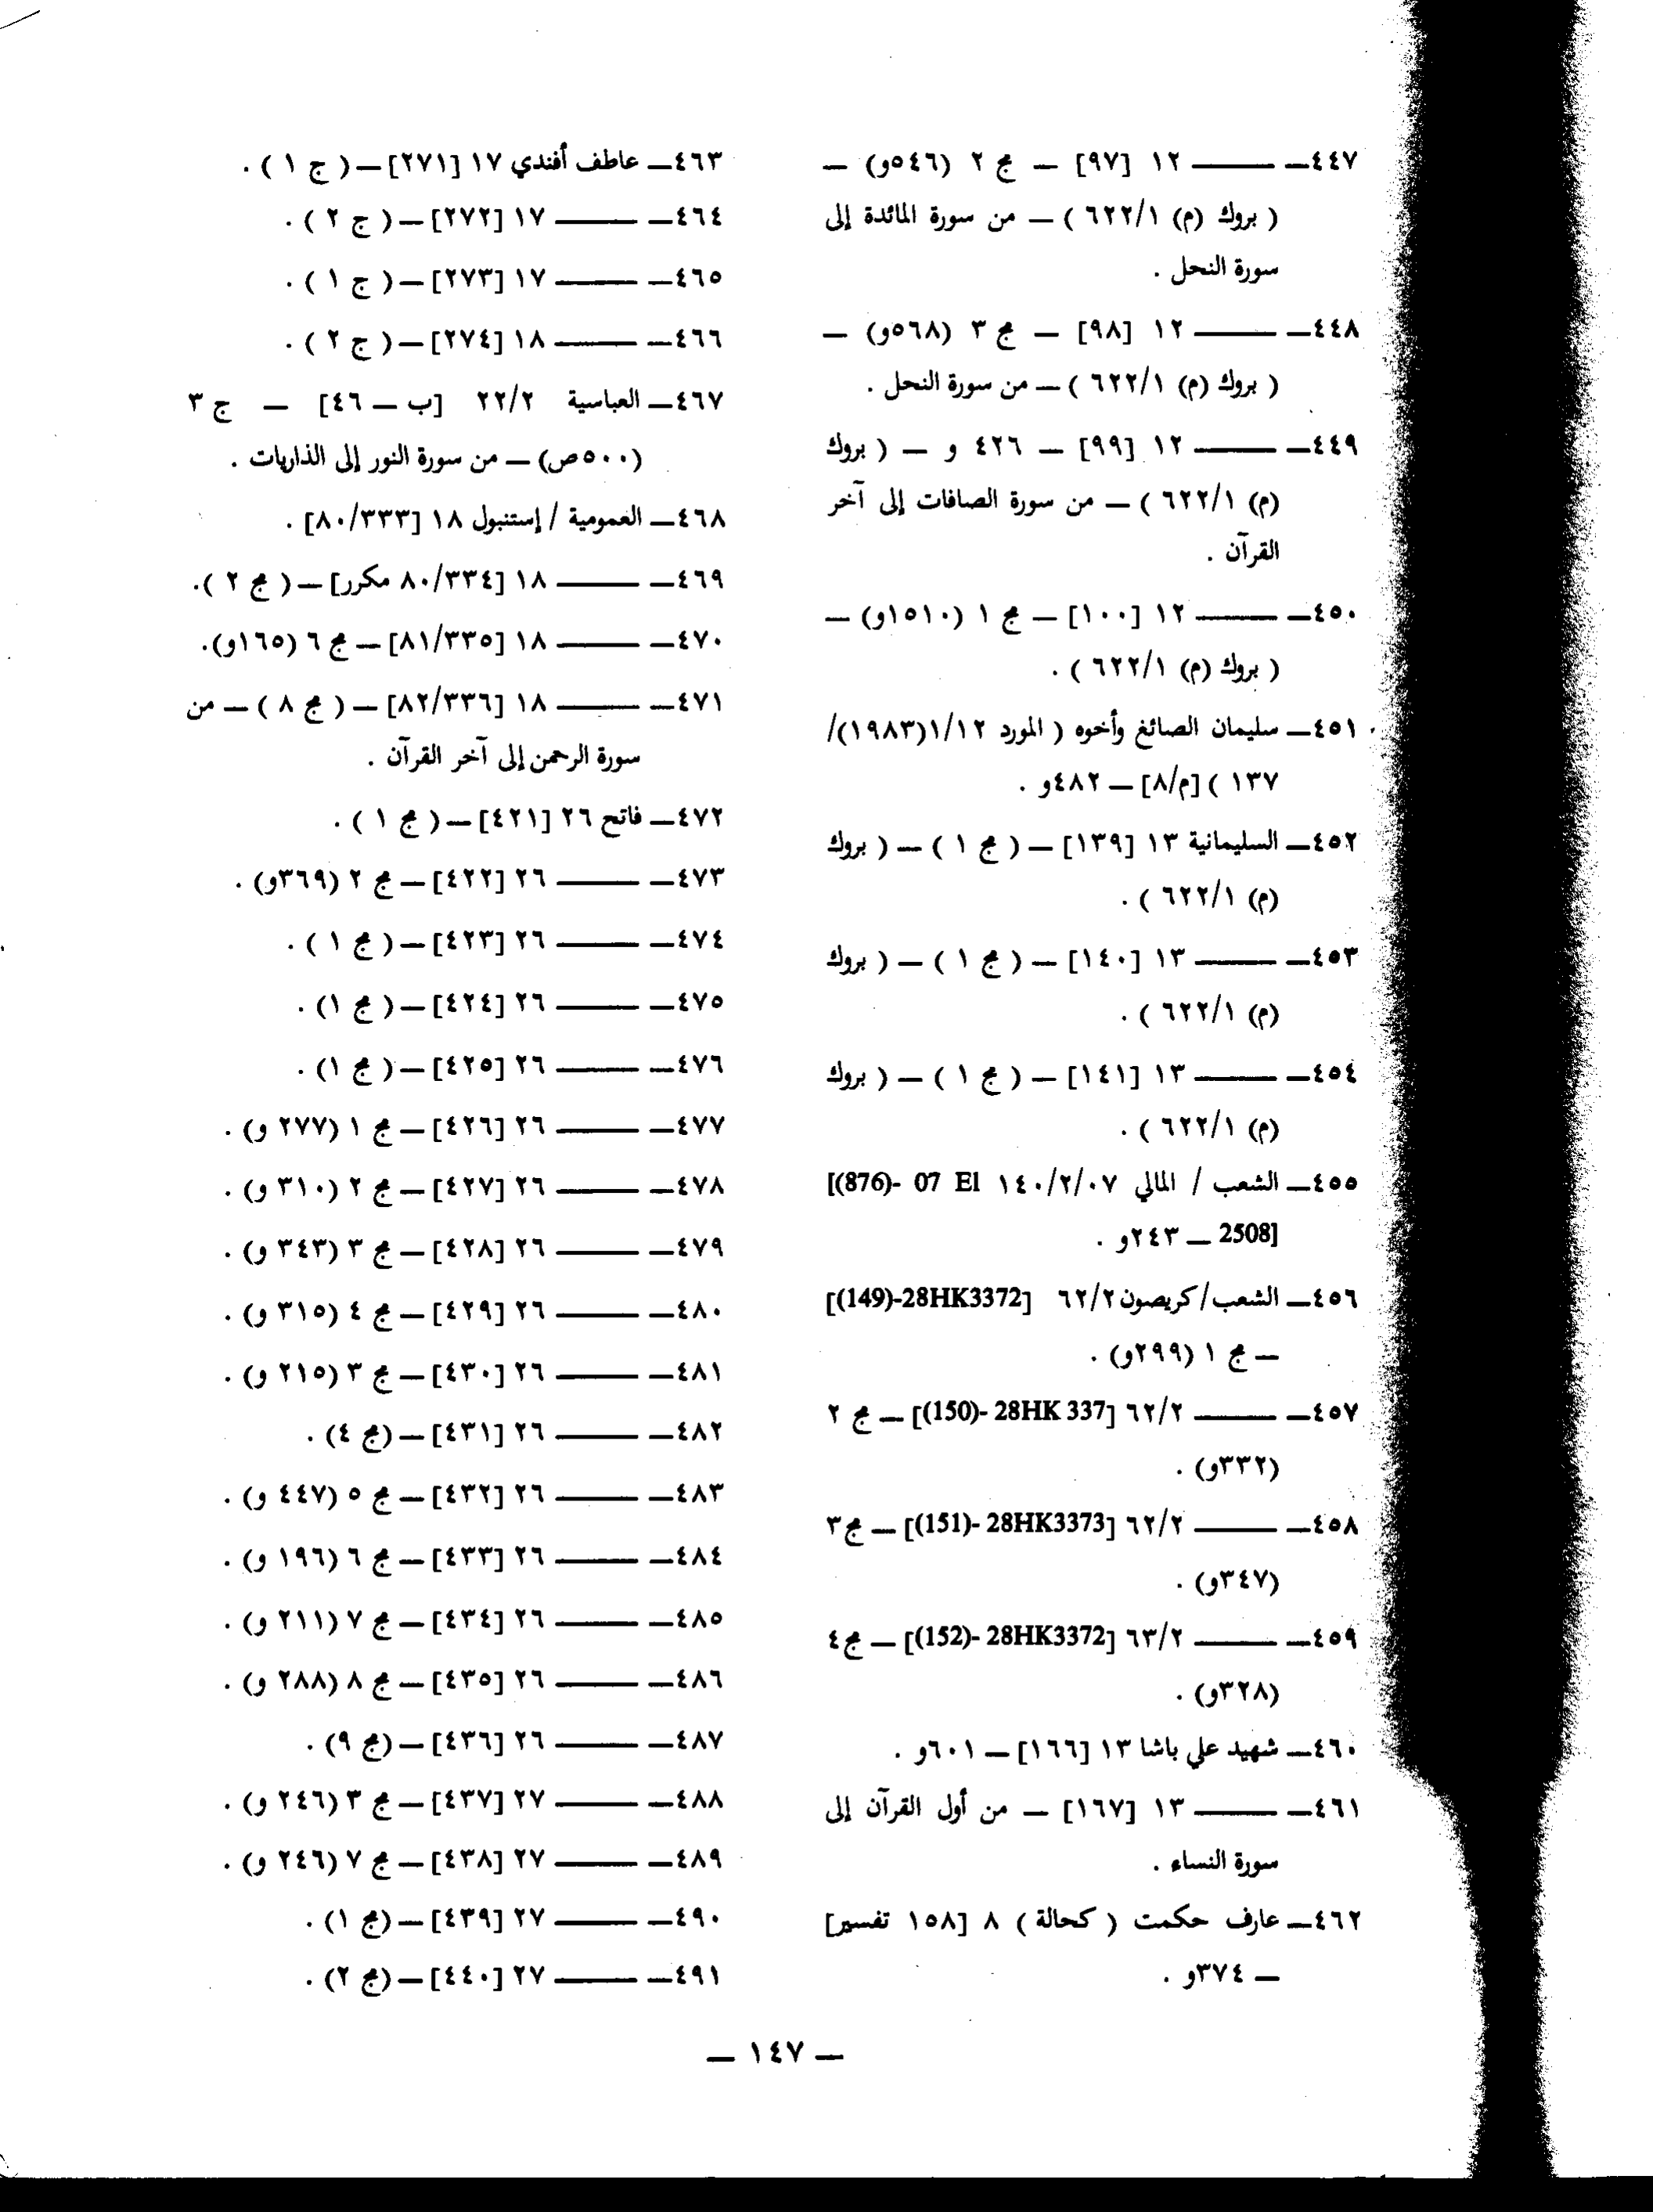 ٤٤٧ــ ـــــــ ١٢ [٩٧] ــ مج ٢ (٥٤٦و) ــ
( بروك (م) ٦٢٢/١ ) ــ من سورة المائدة إلى
سورة النحل .
٤٤٨ــ ـــــــ ١٢ [٩٨] ــ مج ٣ (٥٦٨و) ــ
( بروك (م) ٦٢٢/١ ) ــ من سورة النحل .
٤٤٩ــ ـــــــ ١٢ [٩٩] ــ ٤٢٦ و ــ ( بروك
(م) ٦٢٢/١ ) ــ من سورة الصافات إلى آخر
القرآن .
٤٥٠ــ ـــــــ ١٢ [١٠٠] ــ مج ١ (١٥١٠و) ــ
( بروك (م) ٦٢٢/١ ) .
٤٥١ــ سليمان الصائغ وأخوه ( المورد ١/١٢(١٩٨٣)/
١٣٧ ) [م/٨] ــ ٤٨٢و .
٤٥٢ــ السليمانية ١٣ [١٣٩] ــ ( مج ١ ) ــ ( بروك
(م) ٦٢٢/١ ) .
٤٥٣ــ ـــــــ ١٣ [١٤٠] ــ ( مج ١ ) ــ ( بروك
(م) ٦٢٢/١ ) .
٤٥٤ــ ـــــــ ١٣ [١٤١] ــ ( مج ١ ) ــ ( بروك
(م) ٦٢٢/١ ) .
٤٥٥ــ الشعب / المالي ١٤٠/٢/٠٧ [(876)- 07 El
2508] ــ ٢٤٣و .
٤٥٦ــ الشعب/كريصون٦٢/٢ [(149)-28HK3372]
ــ مج ١ (٢٩٩و) .
٤٥٧ــ ـــــــ ٦٢/٢ [(150)- 28HK 337] ــ مج ٢
(٣٣٢و) .
٤٥٨ــ ـــــــ ٦٢/٢ [(151)- 28HK3373] ــ مج٣
(٣٤٧و) .
٤٥٩ــ ـــــــ ٦٣/٢ [(152)- 28HK3372] ــ مج٤
(٣٢٨و) .
٤٦٠ــ شهيد علي باشا ١٣ [١٦٦] ــ ٦٠١و .
٤٦١ــ ـــــــ ١٣ [١٦٧] ــ من أول القرآن إلى
سورة النساء .
٤٦٢ــ عارف حكمت ( كحالة ) ٨ [١٥٨ تفسير]
ــ ٣٧٤و .
٤٦٣ــ عاطف أفندي ١٧ [٢٧١] ــ ( ج ١ ) .
٤٦٤ــ ـــــــ ١٧ [٢٧٢] ــ ( ج ٢ ) .
٤٦٥ــ ـــــــ ١٧ [٢٧٣] ــ ( ج ١ ) .
٤٦٦ــ ـــــــ ١٨ [٢٧٤] ــ ( ج ٢ ) .
٤٦٧ــ العباسية ٢٢/٢ [ب ــ ٤٦] ــ ج ٣
(٥٠٠ص) ــ من سورة النور إلى الذاريات .
٤٦٨ــ العمومية / إستنبول ١٨ [٨٠/٣٣٣] .
٤٦٩ــ ـــــــ ١٨ [٨٠/٣٣٤ مكرر] ــ ( مج ٢ ).
٤٧٠ــ ـــــــ ١٨ [٨١/٣٣٥] ــ مج ٦ (١٦٥و).
٤٧١ــ ـــــــ ١٨ [٨٢/٣٣٦] ــ ( مج ٨ ) ــ من
سورة الرحمن إلى آخر القرآن .
٤٧٢ــ فاتح ٢٦ [٤٢١] ــ ( مج ١ ) .
٤٧٣ــ ـــــــ ٢٦ [٤٢٢] ــ مج ٢ (٣٦٩و) .
٤٧٤ــ ـــــــ ٢٦ [٤٢٣] ــ ( مج ١ ) .
٤٧٥ــ ـــــــ ٢٦ [٤٢٤] ــ ( مج ١) .
٤٧٦ــ ـــــــ ٢٦ [٤٢٥] ــ ( مج ١) .
٤٧٧ــ ـــــــ ٢٦ [٤٢٦] ــ مج ١ (٢٧٧ و) .
٤٧٨ــ ـــــــ ٢٦ [٤٢٧] ــ مج ٢ (٣١٠ و) .
٤٧٩ــ ـــــــ ٢٦ [٤٢٨] ــ مج ٣ (٣٤٣ و) .
٤٨٠ــ ـــــــ ٢٦ [٤٢٩] ــ مج ٤ (٣١٥ و) .
٤٨١ــ ـــــــ ٢٦ [٤٣٠] ــ مج ٣ (٢١٥ و) .
٤٨٢ــ ـــــــ ٢٦ [٤٣١] ــ (مج ٤) .
٤٨٣ــ ـــــــ ٢٦ [٤٣٢] ــ مج ٥ (٤٤٧ و) .
٤٨٤ــ ـــــــ ٢٦ [٤٣٣] ــ مج ٦ (١٩٦ و) .
٤٨٥ــ ـــــــ ٢٦ [٤٣٤] ــ مج ٧ (٢١١ و) .
٤٨٦ــ ـــــــ ٢٦ [٤٣٥] ــ مج ٨ (٢٨٨ و) .
٤٨٧ــ ـــــــ ٢٦ [٤٣٦] ــ (مج ٩) .
٤٨٨ــ ـــــــ ٢٧ [٤٣٧] ــ مج ٣ (٢٤٦ و) .
٤٨٩ــ ـــــــ ٢٧ [٤٣٨] ــ مج ٧ (٢٤٦ و) .
٤٩٠ــ ـــــــ ٢٧ [٤٣٩] ــ (مج ١) .
٤٩١ــ ـــــــ ٢٧ [٤٤٠] ــ (مج ٢) .
ــ ١٤٧ ــ